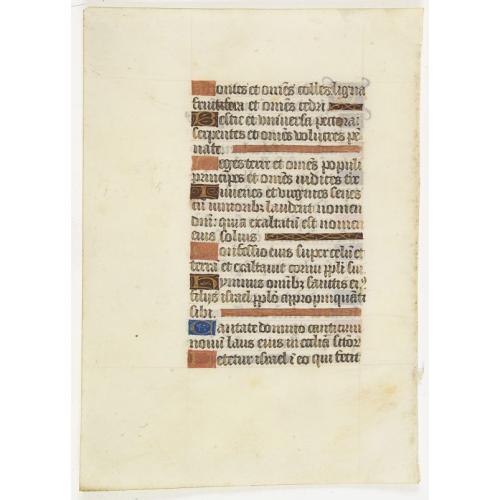 Montes et om̄es colles ligna
fructifera et om̄es cedri
Bestie et vniuersa pecora:
serpentes et om̄es volucres pē
nate.
Reges terre et om̄es populi
principes et om̄es iudices t̄re
Iuuenes et virgines senes
cū iuniorib; laudent nomen
dn̄i: quia exaltatū est nomen
eius solius.
Confessio eius super celū et
terrā et exaltauit cornu ppl̄i sui
Hymnus omīb; sanctis ei⁹
filijs israel pplō appropinquāti
sibi.
Cantate domino canticum
nouū laus eius in eccl̄ia sctōr
Letetur israel ī eo qui fecit